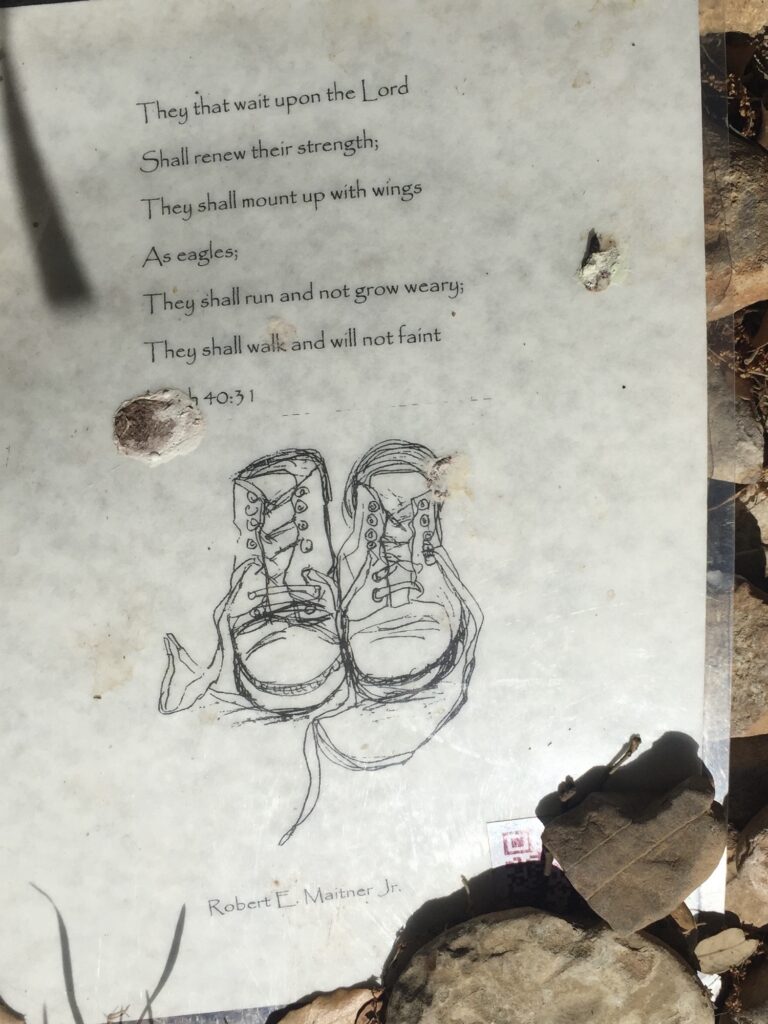 They that wait upon the Lord
Shall renew their strength;
They shall mount up with wings
As eagles;
They shall run and not grow weary;
They shall walk and will not faint
40:31
Robert E. Maitner Jr.